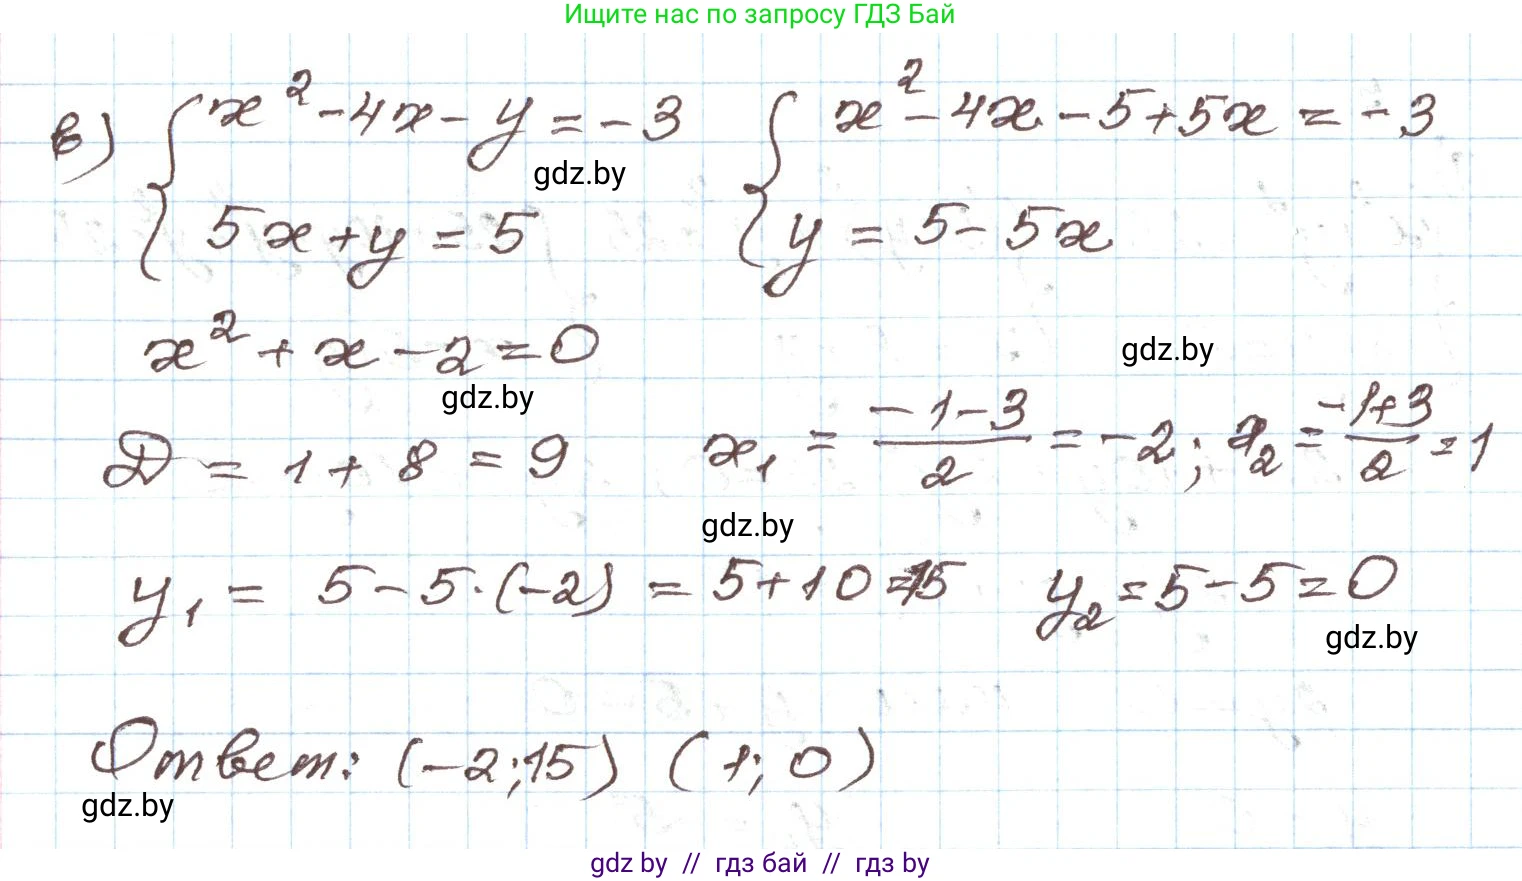 Ищите нас по запросу ГДЗ Бай
в) { x² - 4x - y = -3 { x² - 4x - 5 + 5x = -3
gdz.by
5x + y = 5 y = 5 - 5x
x² + x - 2 = 0
gdz.by
gdz.by
D = 1 + 8 = 9 x₁ = (-1-3)/2 = -2; x₂ = (-1+3)/2 = 1
gdz.by
y₁ = 5 - 5·(-2) = 5 + 10 = 15 y₂ = 5 - 5 = 0
gdz.by
Ответ: (-2; 15) (1; 0)
gdz.by
gdz by // гдз бай // гдз by